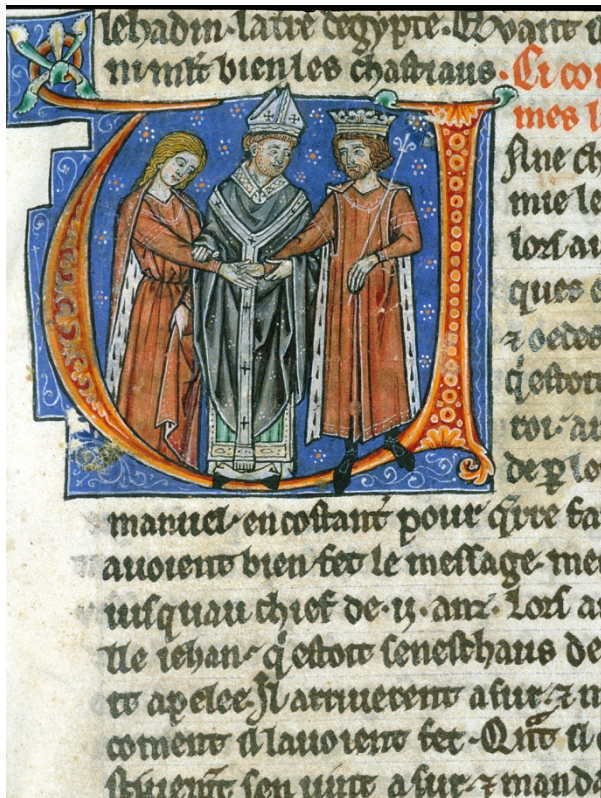 lehadin. la tr̃e degypte. Quant il
ni mĩt bien les chastiaus. Ci co
mes l
fine ch
mie le
lors au
ques e
⁊ oedes
q̃ estoit
roi. au
de ꝑ lo
manuel. en costant̃ pour q̃rre sa
auoient bien fet le message. me
iusquau chief de .ij. anz. Lors a
lle iehan. q̃ estoit seneschaus de
rt apelee. Il arriuerent a sur. ⁊ n
coment il lauoient fet. Qñt il
a sur. ⁊ manda